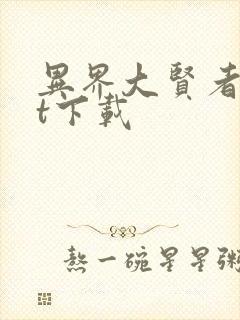 異界大賢者
t下載
熬一碗星星粥